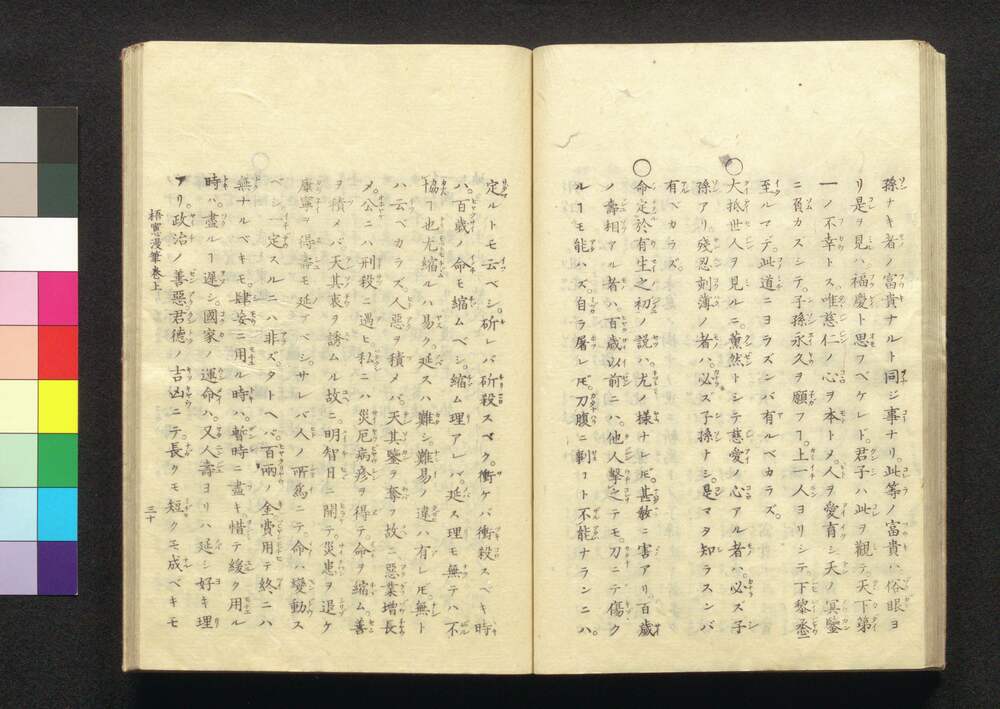 孫ナキ者ノ富貴ナルト同ジ事ナリ此等ノ富貴ハ俗眼ヨ
リ是ヲ見ハ福慶ト思フベケレド君子ハ此ヲ觀テ天下第
一ノ不幸トス唯慈仁ノ心ヲ本トメ人ヲ愛育シ天ノ冥鑒
ニ負カズシテ子孫永久ヲ願フヿ上一人ヨリシテ下黎烝
至ルマデ此道ニヨラズンバ有ルベカラズ。
○大抵世人ヲ見ルニ薫然トシテ慈愛ノ心アル者ハ必ズ子
孫アリ。殘忍刻薄ノ者ハ必ズ子孫ナシ。是マタ知ラズンバ
有ベカラズ。
○命定於有生之初ノ説ハ尤ノ様ナレ𪜈甚教ニ害アリ百歳
ノ壽相アル者ハ百歳以前ニハ他人撃之テモ刀ニテ傷ク
ルヿモ能ハズ。自ラ屠レ𪜈刀腹ニ剚ヿト不能ナランニハ。
定ルトモ云ベシ。斫レバ斫殺スベク。衝ケバ衝殺スベキ時
ハ。百歳ノ命モ縮ムベシ。縮ム理アレバ。延ス理モ無テハ不
協ヿ也尤縮ルハ易ク延スハ難シ。難易ノ違ハ有レ𪜈無ト
ハ云ベカラズ。人惡ヲ積メバ。天其鑒ヲ奪フ故ニ惡業増長
メ。公ニハ刑殺ニ遇ヒ私ニハ災厄病疹ヲ得テ命ヲ縮ム。善
ヲ積メバ天其衷ヲ誘ムル故ニ。明智日ニ開テ災患ヲ退ケ
康寧ヲ得壽モ延ブベシ。サレバ人ノ所為ニテ命ハ變動ス
ベシ一定スルニハ非ズタトヘバ。百兩ノ金費用テ終ニハ
無ナルベキモ。肆妄ニ用ル時ハ。暫時ニ盡キ惜テ緩ク用ル
時ハ盡ルヿ遲シ。國家ノ運命ハ。又人壽ヨリハ延シ好キ理
アリ。政治ノ善惡君德ノ吉凶ニテ長クモ短クモ成ベキモ
梧窻漫筆巻上 三十